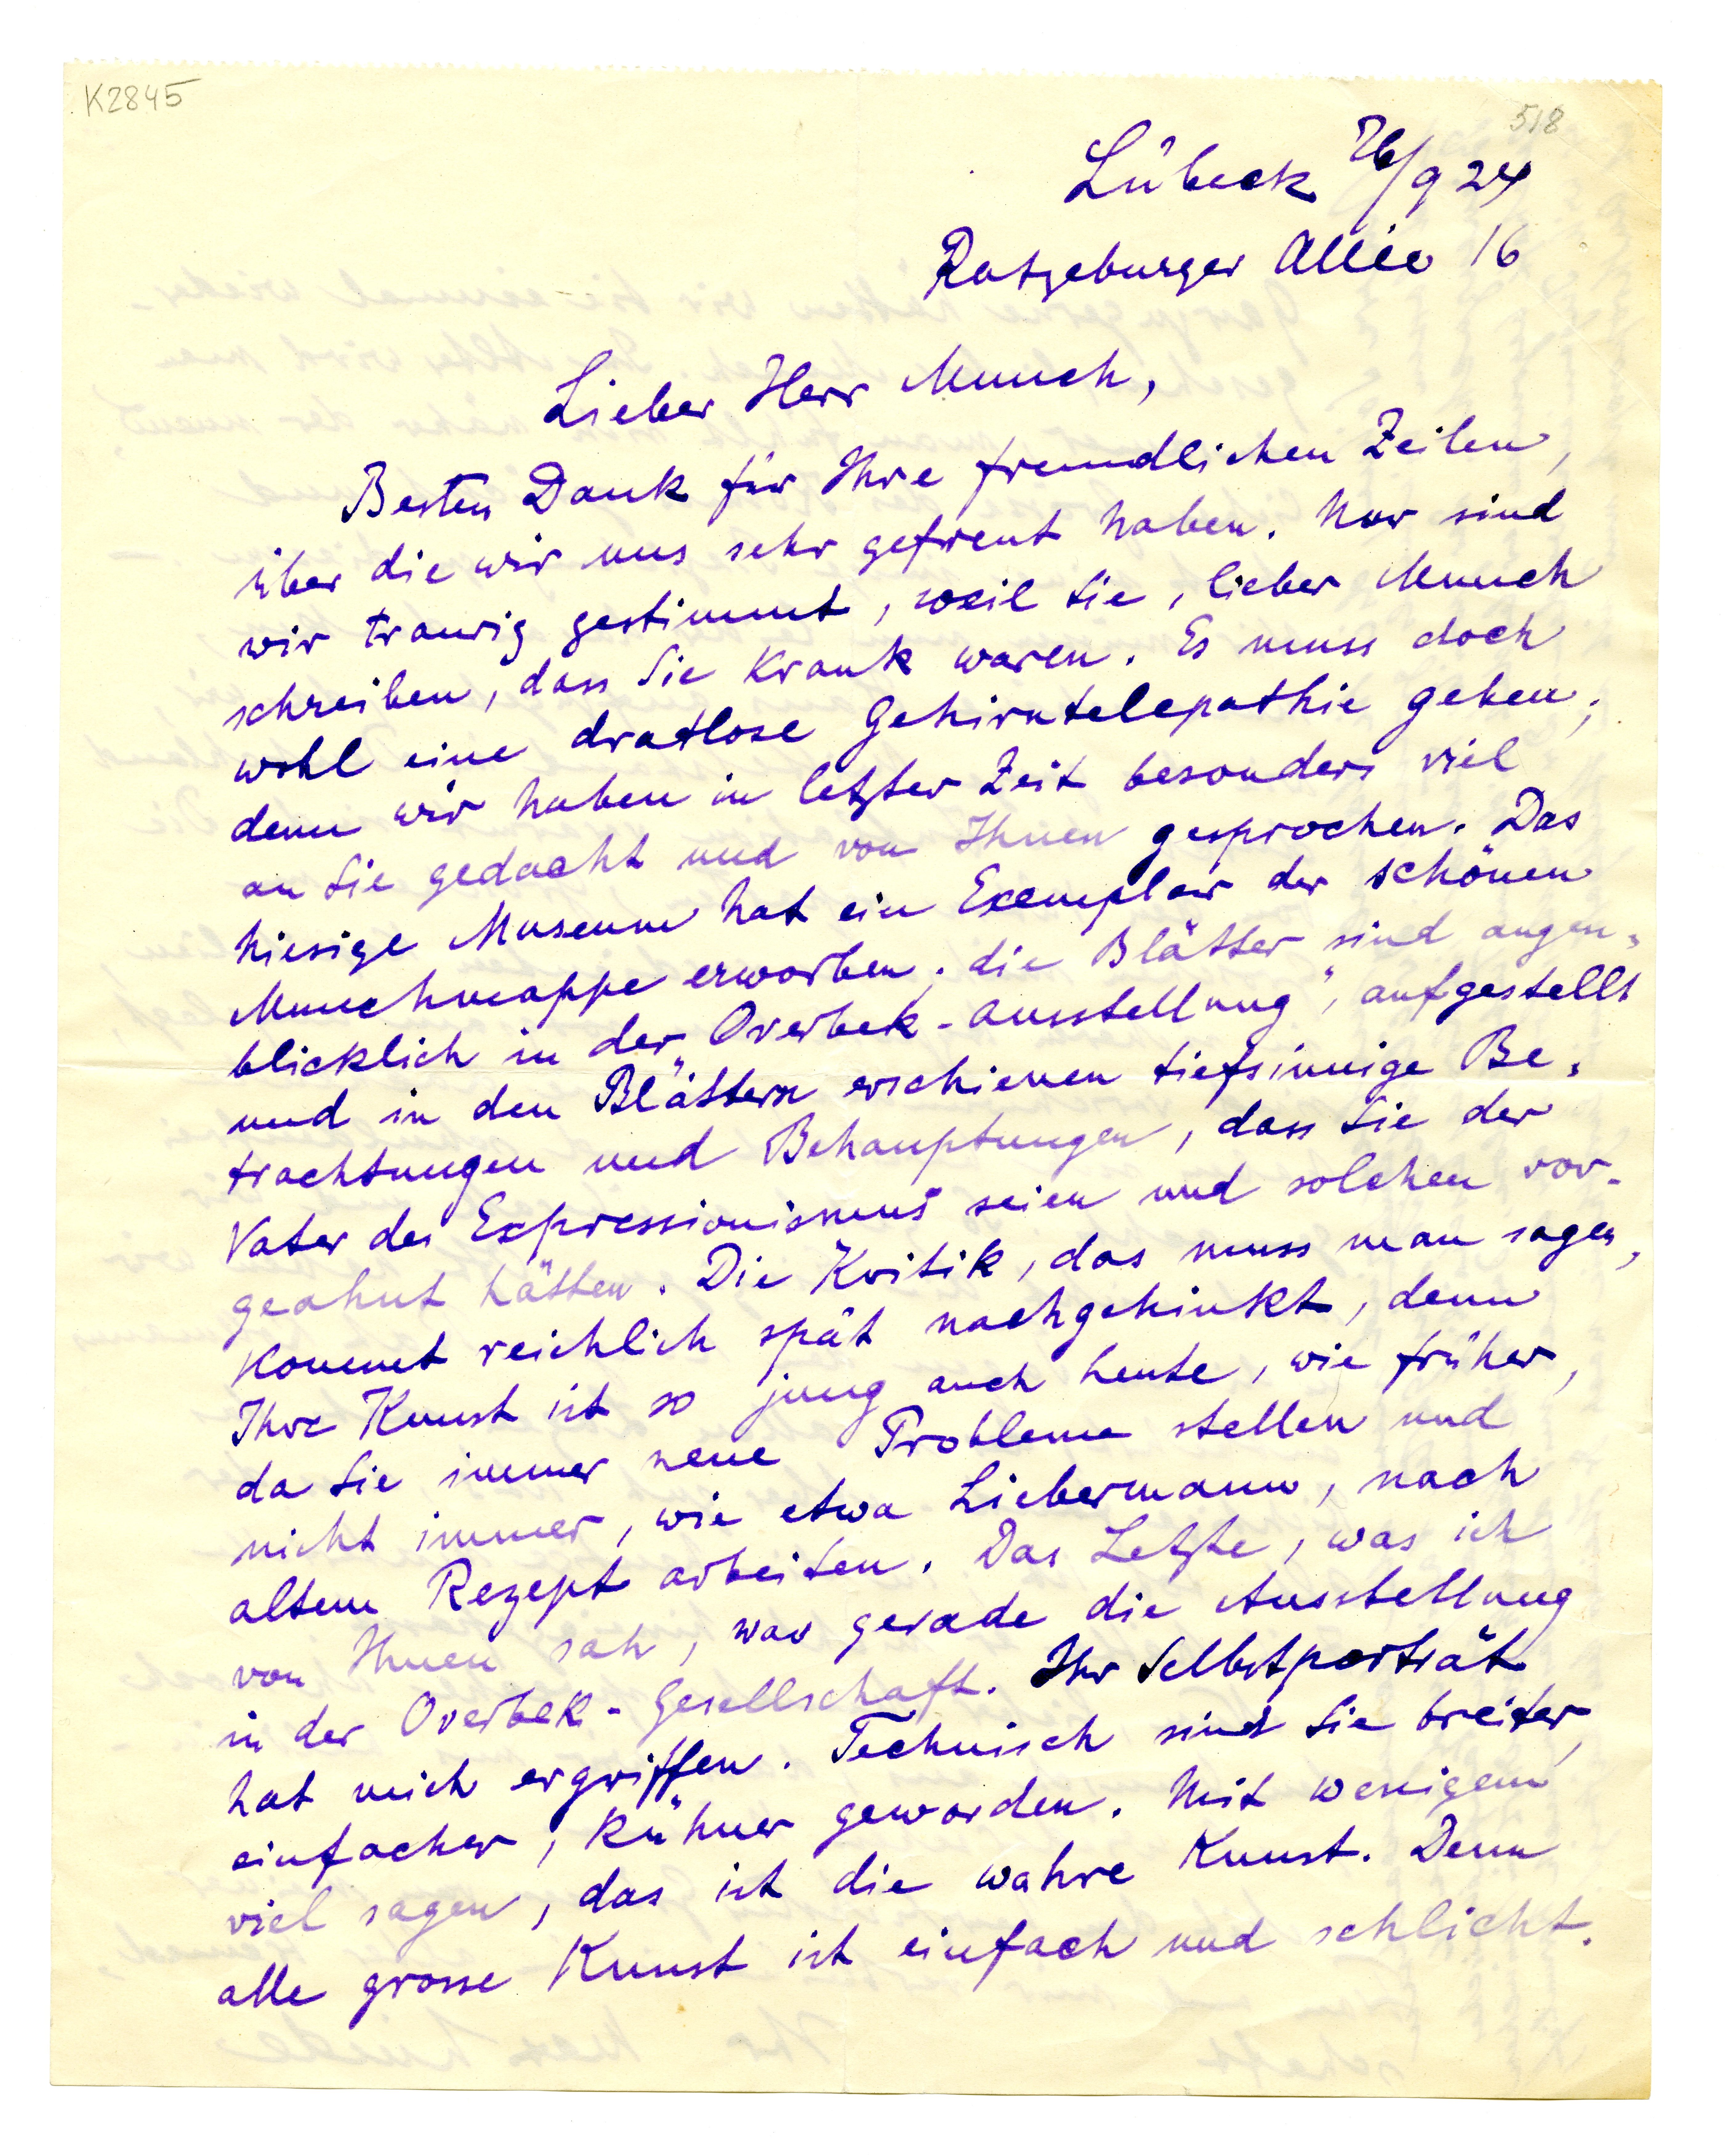 K2845
518
Lübeck 26/9 24
Ratzeburger Allee 16
Lieber Herr Munch,
Besten Dank für Ihre freundlichen Zeilen,
über die wir uns sehr gefreut haben. Nur sind
wir traurig gestimmt, weil Sie, lieber Munch
schreiben, dass Sie krank waren. Es muss doch
wohl eine dratlose Gehirntelepathie geben;
denn wir haben in letzter Zeit besonders viel
an Sie gedacht und von Ihnen gesprochen. Das
hiesige Museum hat ein Exemplar der schönen
Munchmappe erworben; die Blätter sind augen-
blicklich in der „Overbek-Ausstellung", aufgestellt
und in den Blättern erschienen tiefsinnige Be-
trachtungen und Behauptungen, dass Sie der
Vater des Expressionismus seien und solchen vor-
geahnt hätten. Die Kritik, das muss man sagen,
kommt reichlich spät nachgehinkt, denn
Ihre Kunst ist so jung auch heute, wie früher,
da Sie immer neue Probleme stellen und
nicht immer, wie etwa Liebermann, nach
altem Rezept arbeiten. Das Letzte, was ich
von Ihnen sah, war gerade die Ausstellung
in der Overbek-Gesellschaft. Ihr Selbstporträt
hat mich ergriffen. Technisch sind Sie breiter,
einfacher, kühner geworden. Mit wenigem
viel sagen, das ist die wahre Kunst. Denn
alle grosse Kunst ist einfach und schlicht.